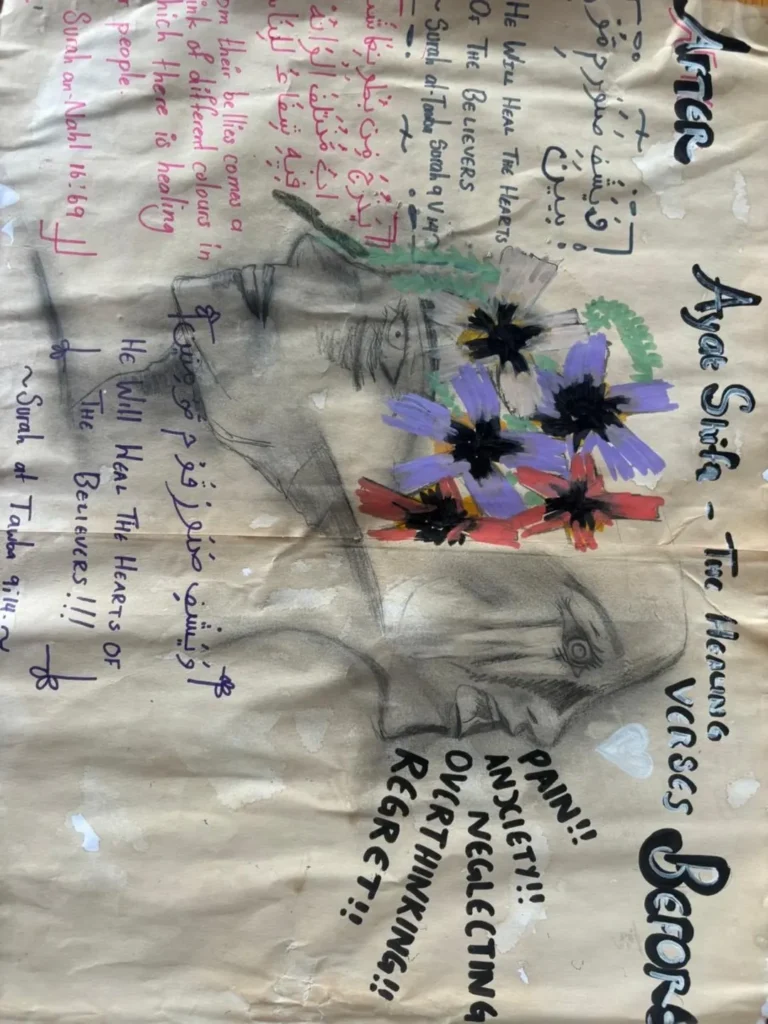 AFTER
Ayat Shifa - THE HEALING
VERSES
BEFOR
وَيَشْفِ صُدُورَ قَوْمٍ
HE WILL HEAL THE HEARTS
OF THE BELIEVERS
~ Surah at Tawba Surah 9 V 14
يَخْرُجُ مِن بُطُونِهَا
مُخْتَلِفٌ أَلْوَانُهُ
فِيهِ شِفَاءٌ
om their bellies comes a
ink of different colours in
hich there is healing
r people.
Surah an-Nahl 16:69
PAIN!!
ANXIETY!!
NEGLECTING
OVERTHINKING!!
REGRET!!
وَيَشْفِ صُدُورَ قَوْمٍ مُؤْمِنِينَ
HE WILL HEAL THE HEARTS OF
THE BELIEVERS!!!
~ Surah at Tawba 9:14. ~